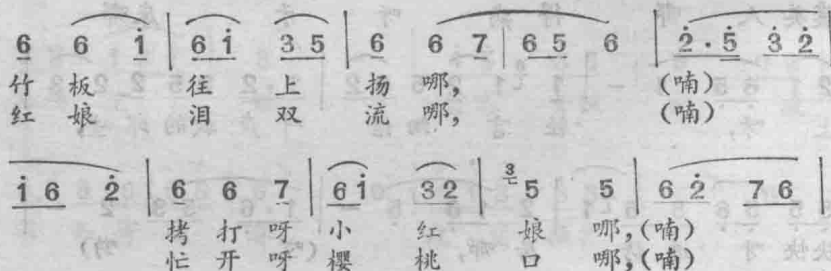 6 6 i̇ | 6 i̇ 3 5 | 6 6 7 | 6 5 6 | 2̇ · 5̇ 3̇ 2̇
竹 板 往 上 扬 哪, (喃)
红 娘 泪 双 流 哪, (喃)
i̇ 6 2̇ | 6 6 7 | 6 i̇ 3 2 | 3 5 5 | 6 2̇ 7 6 |
拷 打 呀 小 红 娘 哪, (喃)
忙 开 呀 樱 桃 口 哪, (喃)